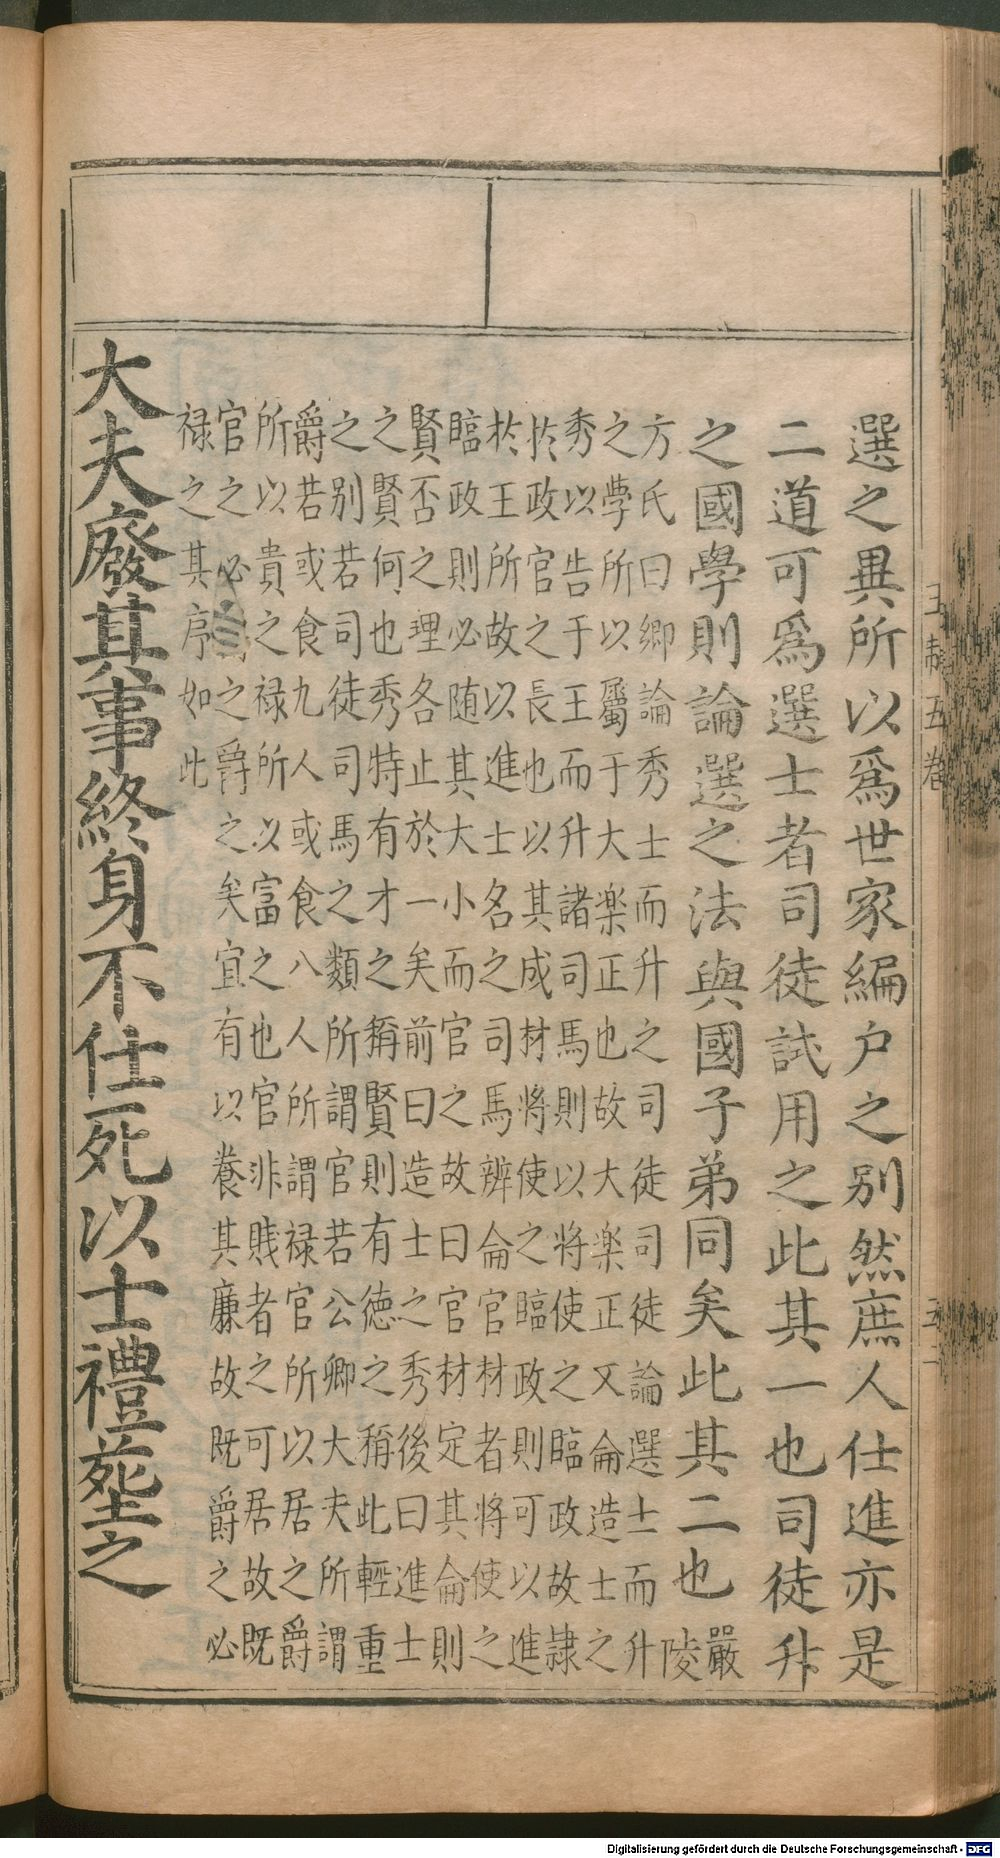 選之異所以爲世家編户之别然庶人仕進亦是
二道可爲選士者司徒試用之此其一也司徒升
之國學則論選之法與國子弟同矣此其二也嚴陵
方氏曰鄉論秀士而升之司徒司徒論選士而升
之學所以屬于大楽正也故大楽正又侖造士之
秀以告于王而升諸司馬則以將使之臨政故隷
扵政官之長也以其成材將使之臨政則可以進
扵王所故以進士名之司馬辨侖官材者將使之
臨政則必随其大小而官之故曰官材定其侖則
賢否之理各止於一矣前曰造士之秀後曰進士
之賢何也秀特有才之稱賢則有徳之稱此輕重
之别若司徒司馬之類所謂官若公卿大夫所謂
爵若或食九人或食八人所謂禄官所以居之爵
所以貴之禄所以富之也官非賎者之可居故既
官之必官之爵之矣宜有以養其廉故既爵之必
禄之其序如此
大夫廢其事終身不仕死以士禮塟之
王制五卷
Digitalisierung gefördert durch die Deutsche Forschungsgemeinschaft - DFG